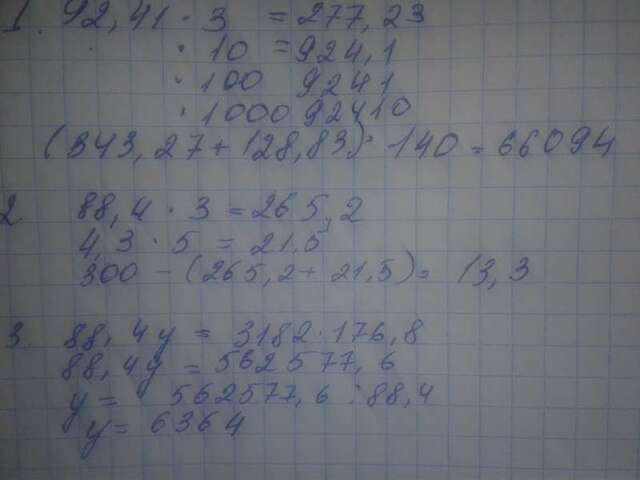 1. 92,41 · 3 = 277,23
· 10 = 924,1
· 100 9241
· 1000 92410
(343,27 + 128,83) · 140 = 66094
2 88,4 · 3 = 265,2
4,3 · 5 = 21,5
300 - (265,2 + 21,5) = 13,3
3. 88,4y = 3182 · 176,8
88,4y = 562577,6
y = 562577,6 : 88,4
y = 6364